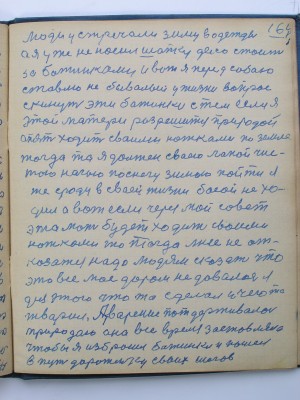 164
люди устречали зиму в одежды
а я уже не носил шапку дело стоит
за батинками и вот я перед собаю
ставлю не бывалый у жизни вопрос
скинуть эти батинки с тем если я
этой матери розрешиту природой
опят ходит своими ножками по земле
тогда та я должен сваею такой чис-
того насчо по снегу зимою пойти я
же сроду в своей жизни босой не хо-
дил а вот если через мой совет
эта мать будет ходит своими
ножками то тогда мне не от-
казатся надо людям сказат что
это все мое даром не довалося
для этого что то сделал и чего та
тварил. А варение подтдерживалося
природаю она все время заставляла
чтобы я избросил батинки и пошел
в пут дорожку своих шагов